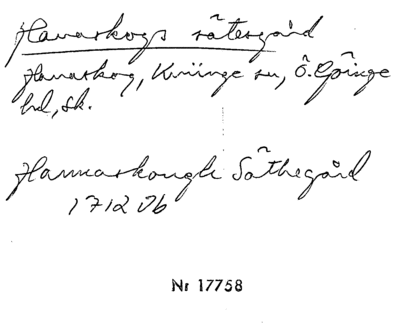 Hanaskogs sätesgård
Hanaskog, Kviinge sn, Ö. Göinge
hd, Sk.
Hannaskough Säthegård
1712 Ob
Nr 17758